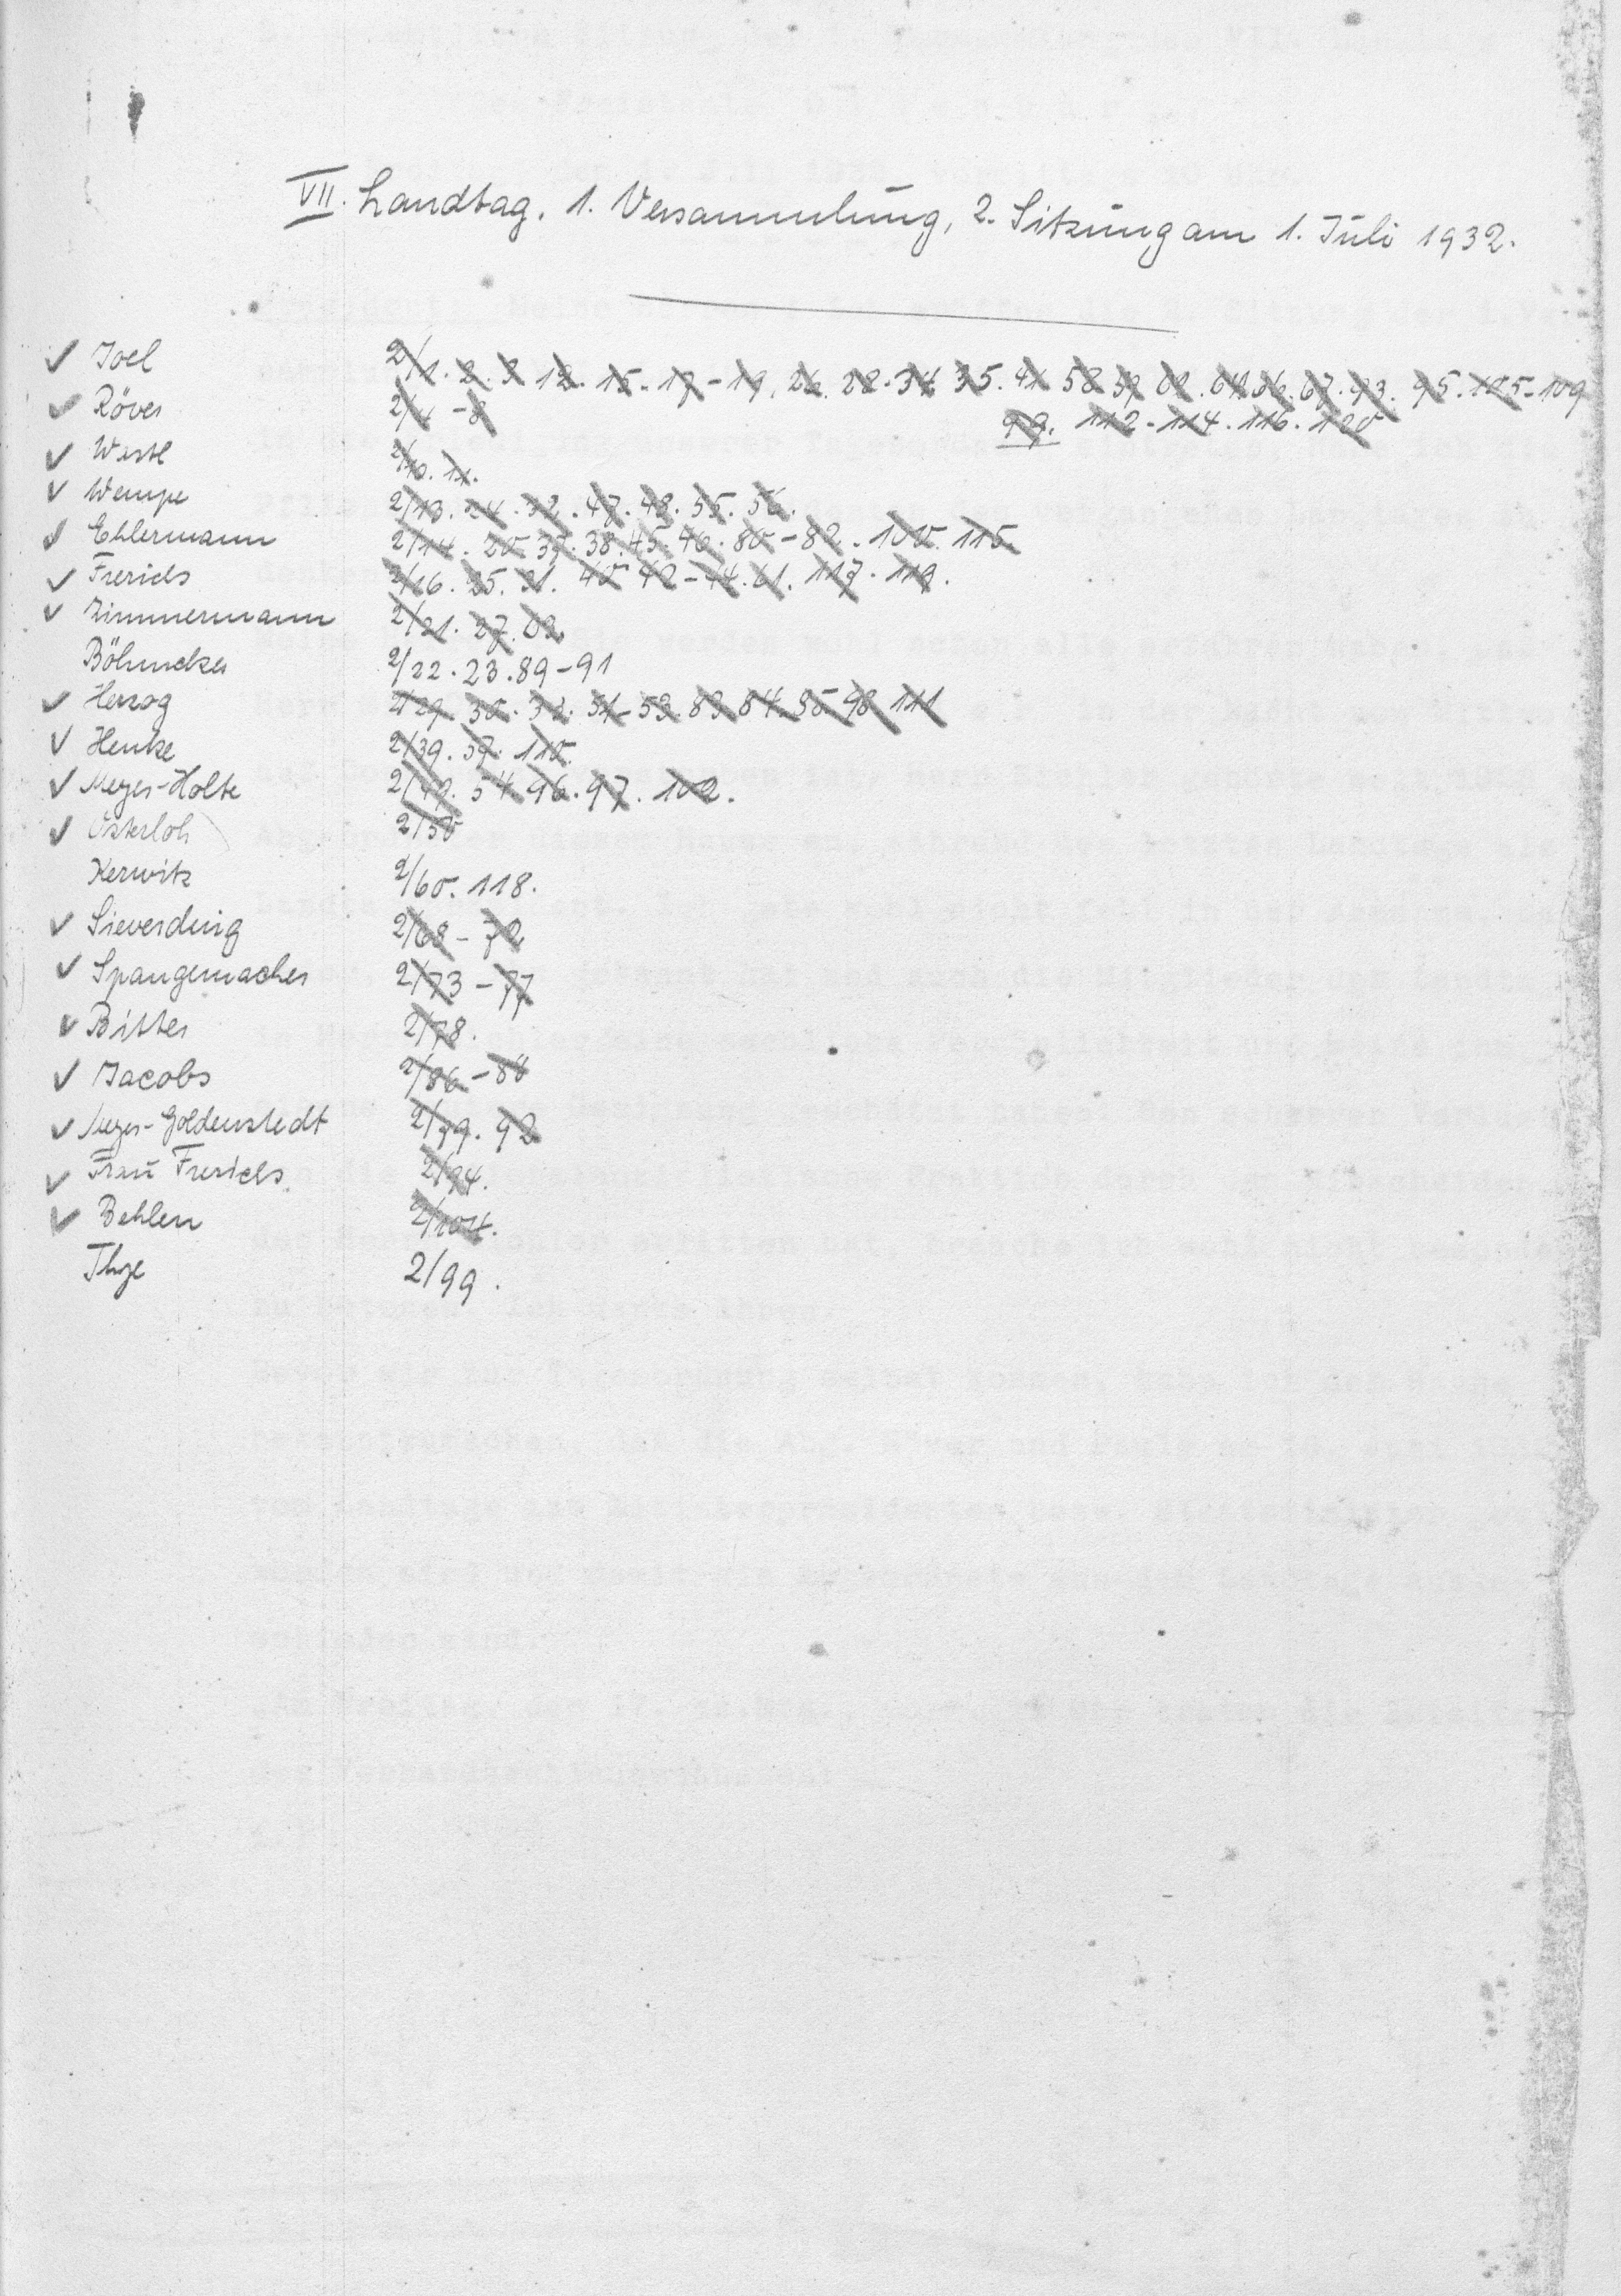 VII. Landtag. 1. Versammlung, 2. Sitzung am 1. Juli 1932.
✓ Joel 2/1. 2. 3 12. 15. 17-19. 26. 28. 34 35. 41 58 59 62. 64 66. 67. 93. 95. 105-109
99. 112-114. 116. 120
✓ Röver 2/4-8
✓ Westl 2/10. 11.
✓ Wempe 2/13. 24. 32. 47. 48. 55. 56.
✓ Ehlermann 2/14. 20 37. 38. 45. 46. 80-82. 100. 115
✓ Frerichs 2/16. 25. 31. 40 42-44. 61. 117. 119.
✓ Zimmermann 2/21. 27. 63.
Böhmcker 2/22. 23. 89-91
✓ Herzog 2/29. 30. 33. 51-53. 83 84. 85. 98 111
✓ Henke 2/39. 57. 110.
✓ Meyer-Holte 2/49. 54. 96. 97. 102.
✓ Osterloh 2/50
Kerwitz 2/60. 118.
✓ Sieverding 2/68-72
✓ Spangemacher 2/73-77
✓ Bitter 2/78.
✓ Jacobs 2/86-88
✓ Meyer-Goldenstedt 2/79. 92
✓ Frau Frerichs 2/94.
✓ Behlen 2/104.
Thye 2/99.